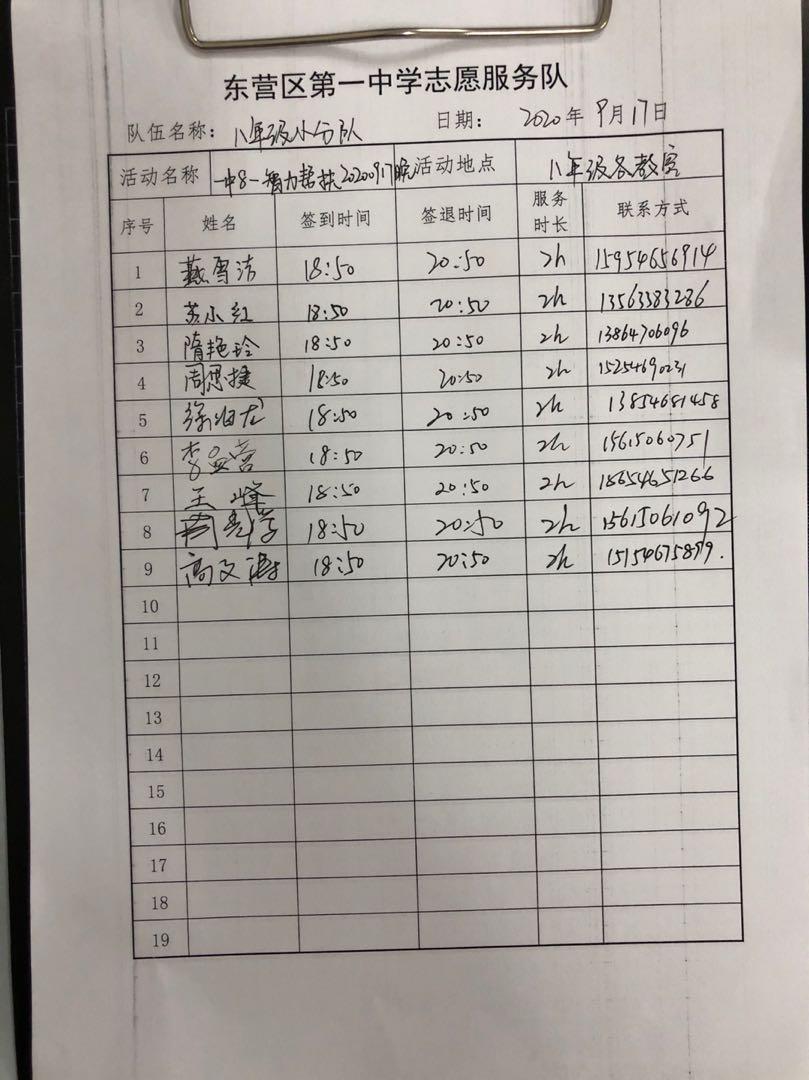 东营区第一中学志愿服务队
队伍名称： 八年级小分队 日期： 2020年 9月17日
活动名称 一中8一智力帮扶20200917晚 活动地点 八年级各教室
序号 姓名 签到时间 签退时间 服务时长 联系方式
1 燕雪洁 18:50 20:50 2h 15954656914
2 苏小红 18:50 20:50 2h 13563383286
3 隋艳玲 18:50 20:50 2h 13864706096
4 周思捷 18:50 20:50 2h 15254690231
5 徐 18:50 20:50 2h 13854681458
6 李 18:50 20:50 2h 15615060751
7 王峰 18:50 20:50 2h 18654651266
8 18:50 20:50 2h 15615061092
9 高文涛 18:50 20:50 2h 15154675899.
10
11
12
13
14
15
16
17
18
19